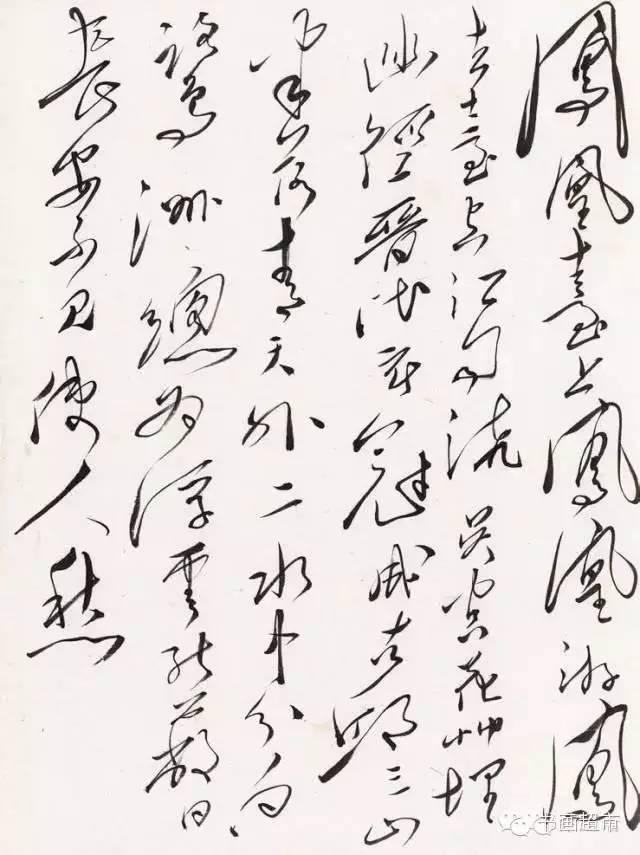 鳳凰臺上鳳凰游鳳
去臺空江自流吳宮花艸埋
幽徑晉代衣冠成古邱三山
半落青天外二水中分白
鷺洲總為浮雲能蔽日
長安不見使人愁
书画超市